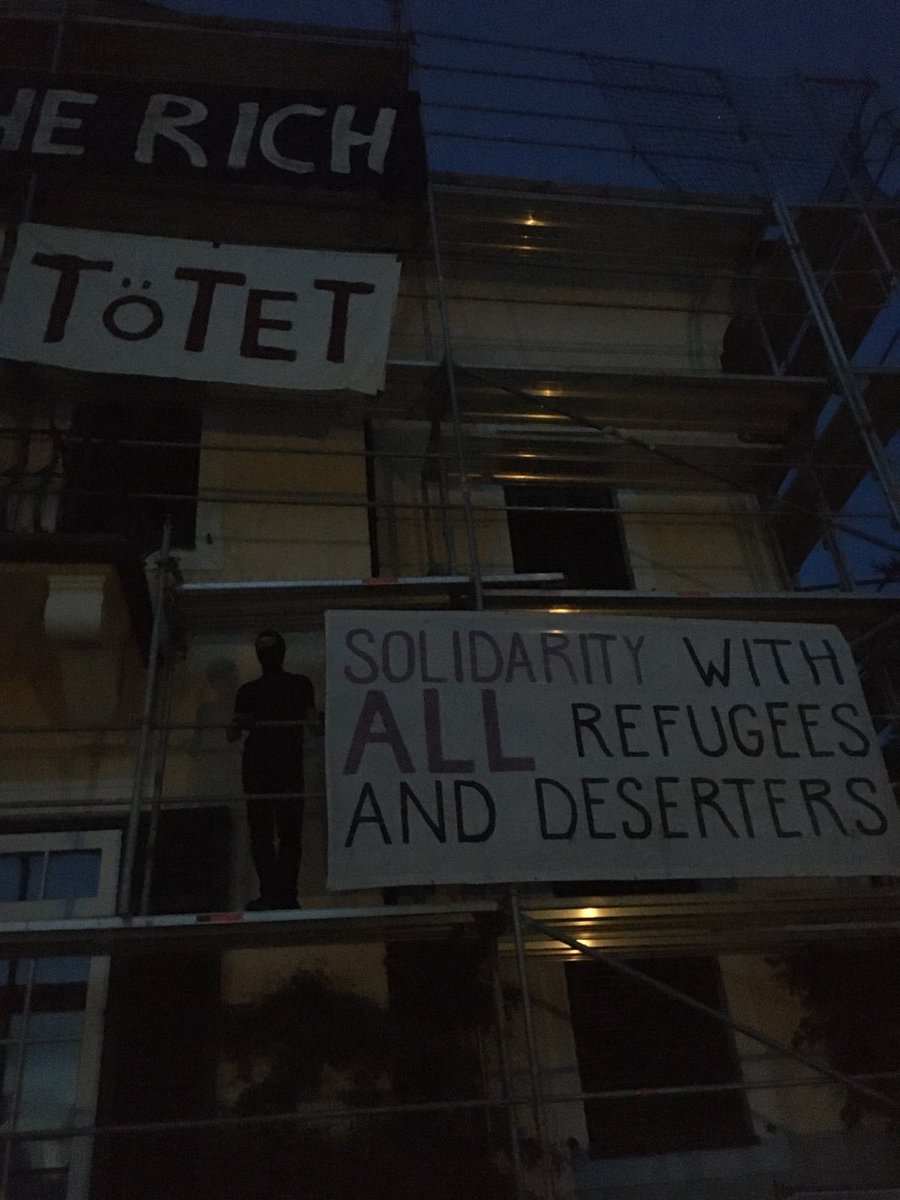 HE RICH
TÖTET
SOLIDARITY WITH
ALL REFUGEES
AND DESERTERS